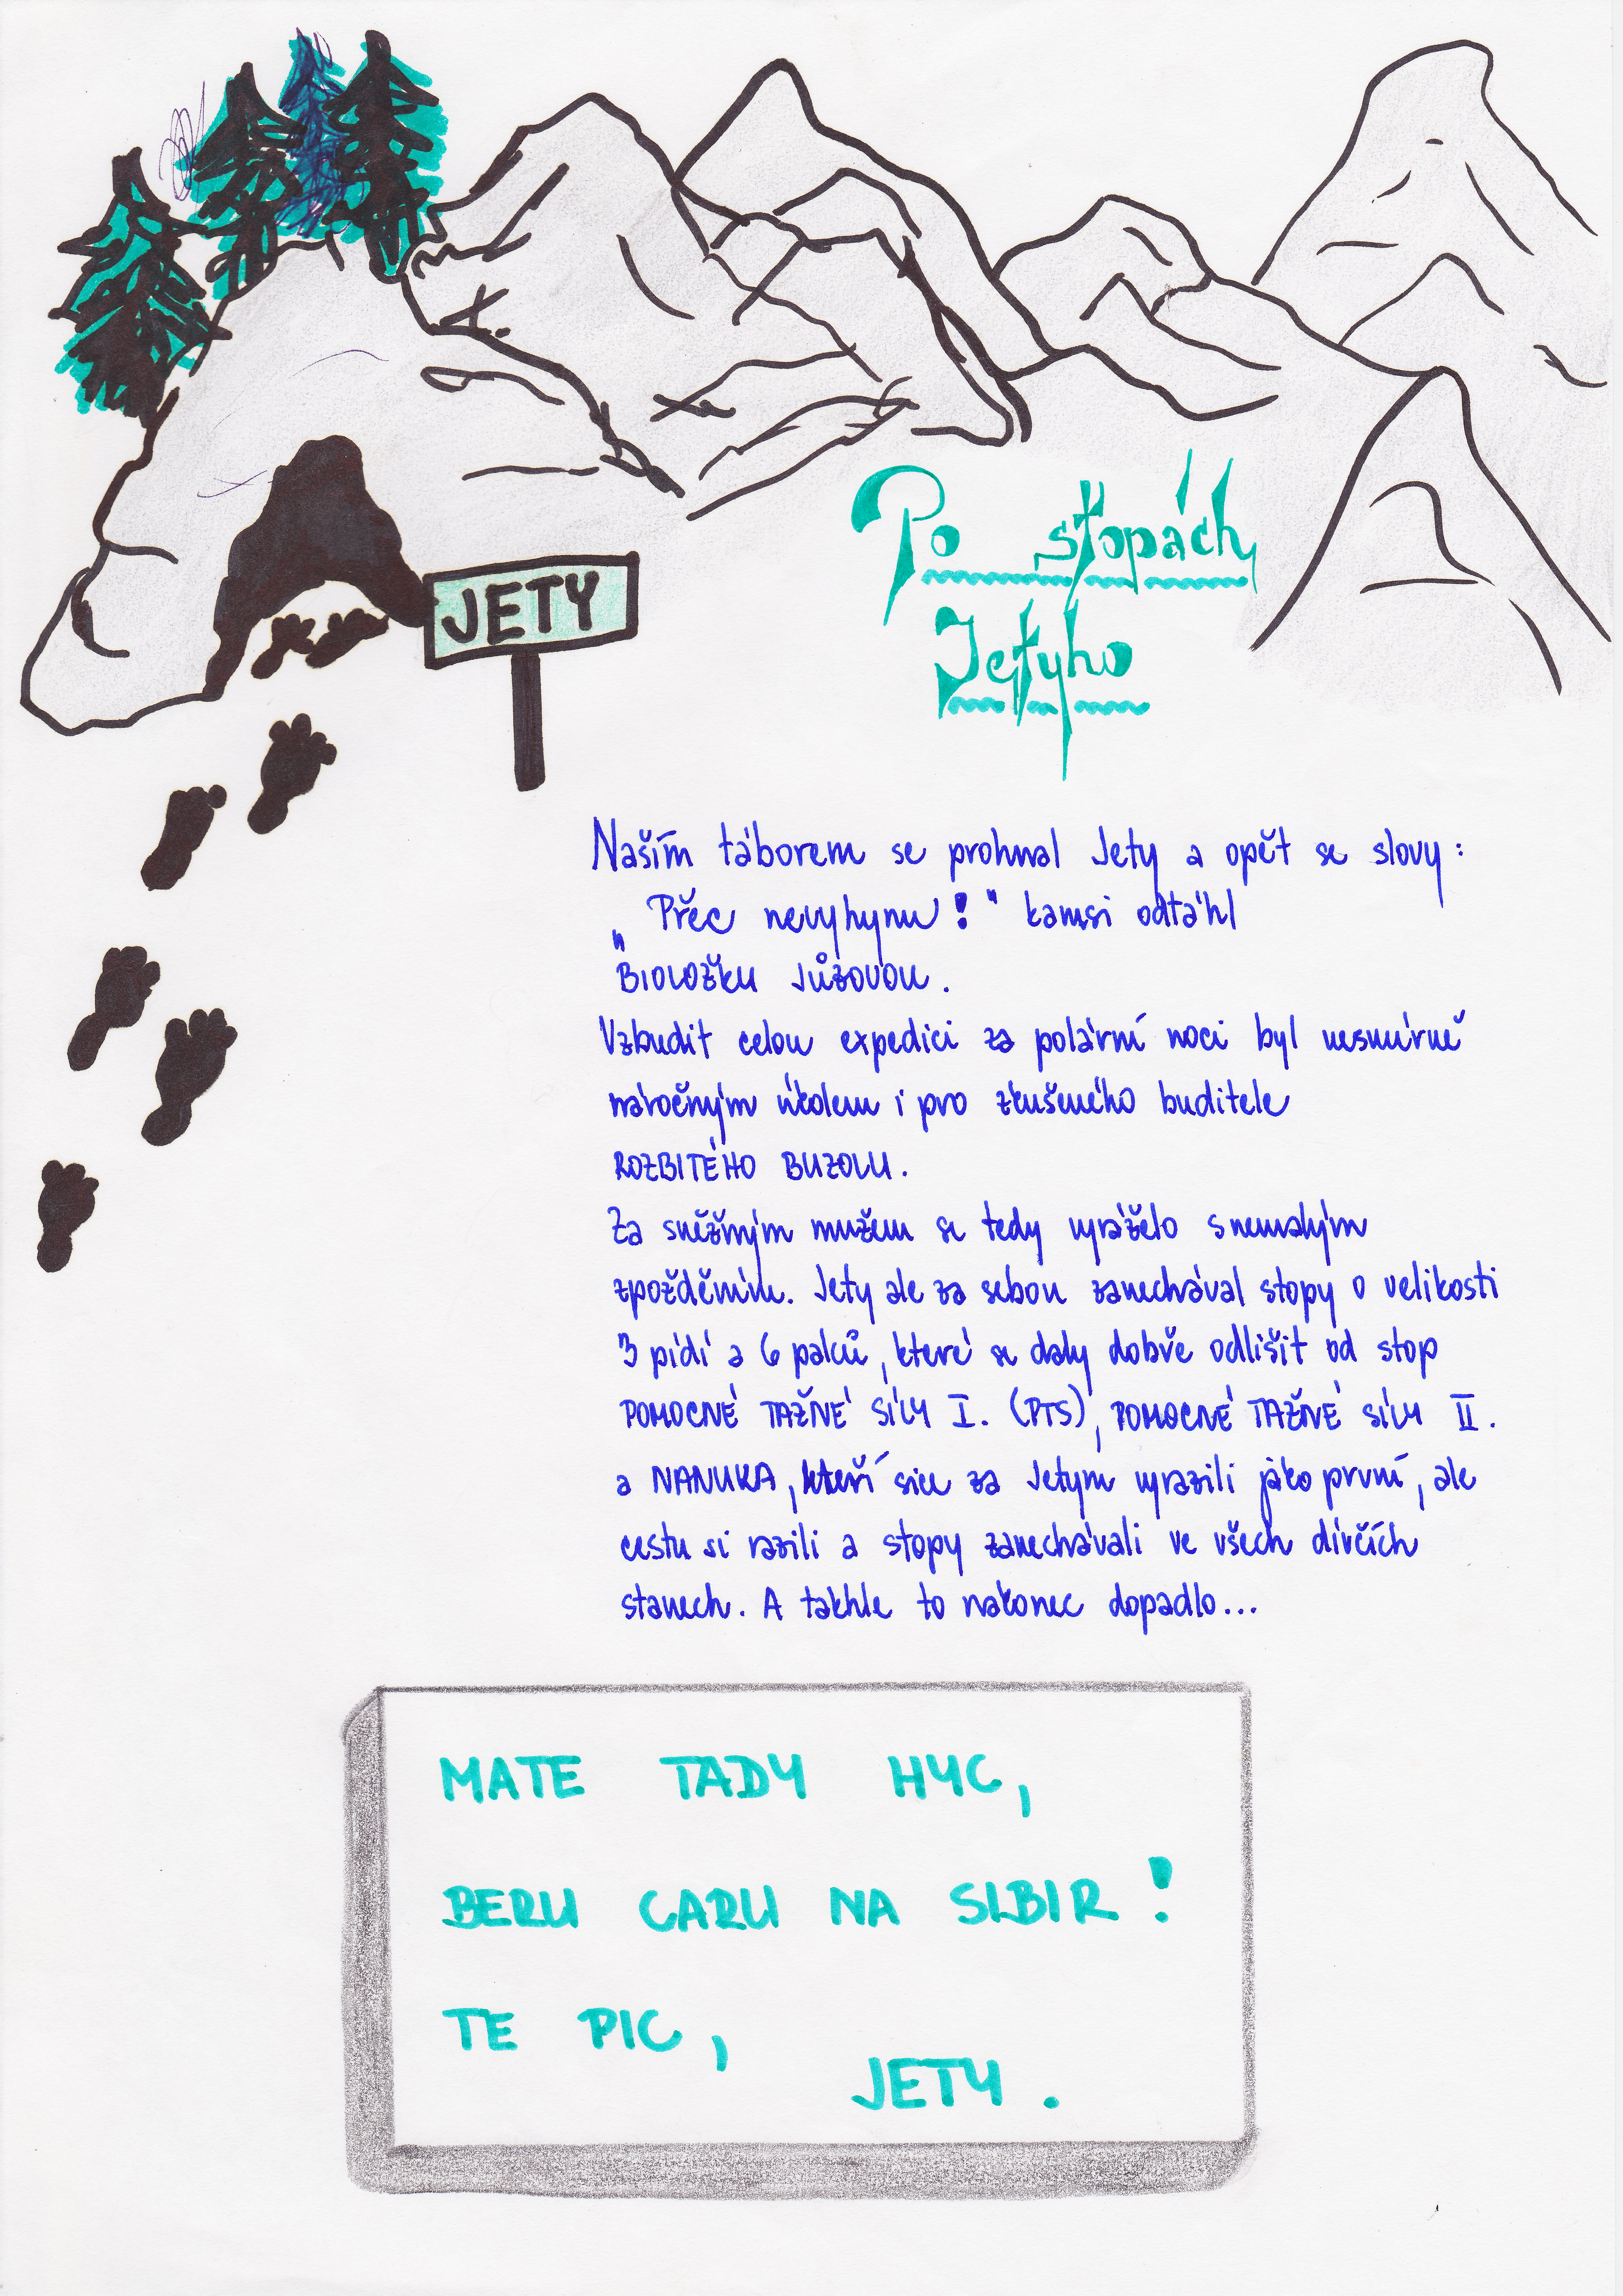 JETY
Po stopách
Jetyho
Naším táborem se prohnal Jety a opět se slovy:
„Přec nevyhynu!" kamsi odtáhl
BIOLOŽKU JŮZOVOU.
Vzbudit celou expedici za polární noci byl nesmírně
náročným úkolem i pro zkušeného buditele
ROZBITÉHO BUZOLU.
Za sněžným mužem se tedy vyráželo s nemalým
zpožděním. Jety ale za sebou zanechával stopy o velikosti
3 pídí a 6 palců, které se daly dobře odlišit od stop
POMOCNÉ TAŽNÉ SÍLY I. (PTS), POMOCNÉ TAŽNÉ SÍLY II.
a NANUKA, kteří sice za Jetym vyrazili jako první, ale
cestu si razili a stopy zanechávali ve všech dívčích
stanech. A takhle to nakonec dopadlo...
MATE TADY HYC,
BERU CARU NA SIBIR!
TE PIC,
JETY.